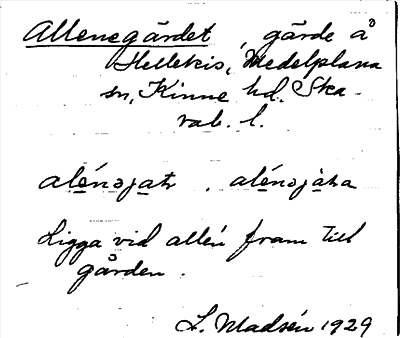 Allenegärdet, gärde å
Hellekis, Medelplana
sn, Kinne hd. Ska-
rab. l.
alénəjat, alénəjàta
Ligga vid allén fram till
gården.
L. Madsén 1929